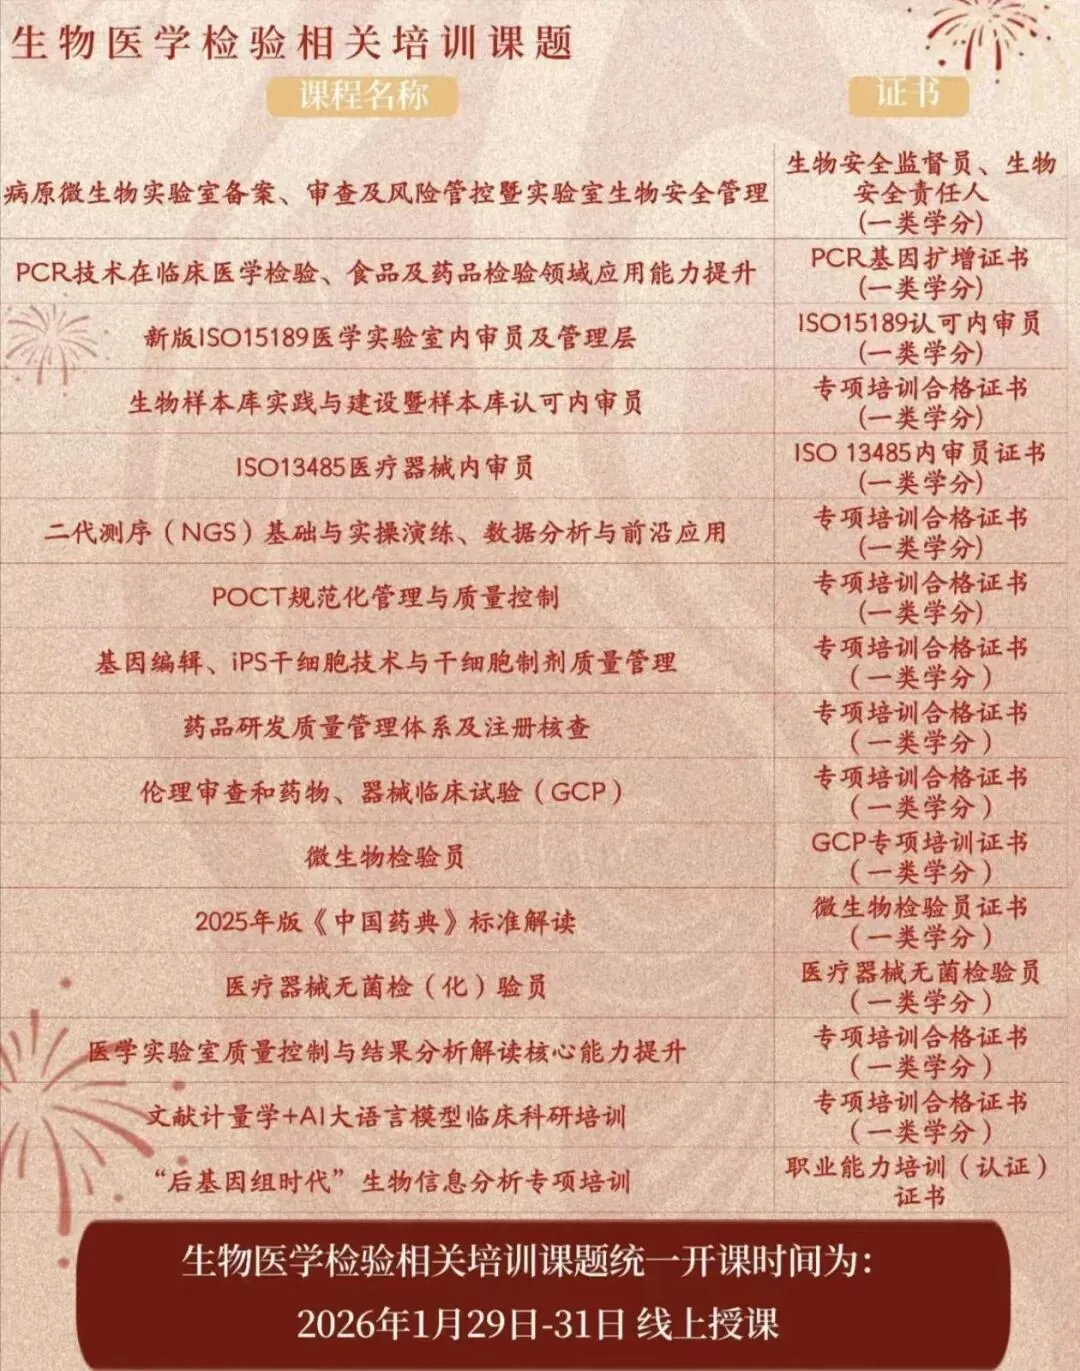 生物医学检验相关培训课题
课程名称
证书
病原微生物实验室备案、审查及风险管控暨实验室生物安全管理
生物安全监督员、生物
安全责任人
(一类学分)
PCR技术在临床医学检验、食品及药品检验领域应用能力提升
PCR基因扩增证书
(一类学分)
新版ISO15189医学实验室内审员及管理层
ISO15189认可内审员
(一类学分)
生物样本库实践与建设暨样本库认可内审员
专项培训合格证书
(一类学分)
ISO13485医疗器械内审员
ISO 13485内审员证书
(一类学分)
二代测序（NGS）基础与实操演练、数据分析与前沿应用
专项培训合格证书
(一类学分)
POCT规范化管理与质量控制
专项培训合格证书
(一类学分)
基因编辑、iPS干细胞技术与干细胞制剂质量管理
专项培训合格证书
（一类学分）
药品研发质量管理体系及注册核查
专项培训合格证书
（一类学分）
伦理审查和药物、器械临床试验（GCP）
专项培训合格证书
（一类学分）
微生物检验员
GCP专项培训证书
（一类学分）
2025年版《中国药典》标准解读
微生物检验员证书
（一类学分）
医疗器械无菌检（化）验员
医疗器械无菌检验员
（一类学分）
医学实验室质量控制与结果分析解读核心能力提升
专项培训合格证书
（一类学分）
文献计量学+AI大语言模型临床科研培训
专项培训合格证书
（一类学分）
“后基因组时代”生物信息分析专项培训
职业能力培训（认证）
证书
生物医学检验相关培训课题统一开课时间为：
2026年1月29日-31日 线上授课